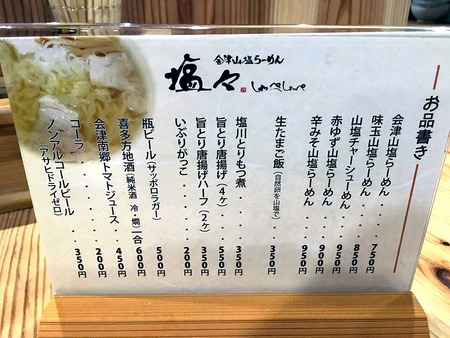 お品書き
会津山塩らーめん
塩々
しおやしんぺ
会津山塩らーめん・・・・・750円
味玉山塩らーめん・・・・・850円
山塩チャーシューめん・・・950円
赤ゆず山塩らーめん・・・・900円
辛みそ山塩らーめん・・・・950円
生たまご飯(自然卵を山塩で)・・・350円
塩川とりもつ煮・・・・・・350円
旨とり唐揚げ(4ヶ)・・・・550円
旨とり唐揚げハーフ(2ヶ)・・350円
いぶりがっこ・・・・・・・200円
瓶ビール(サッポロラガー)・・500円
喜多方地酒(純米酒 冷・燗)一合 600円 450円
会津南郷トマトジュース・・・200円
コーラ・・・・・・・・・・
ノンアルコールビール・・・350円
(アサヒドライゼロ)